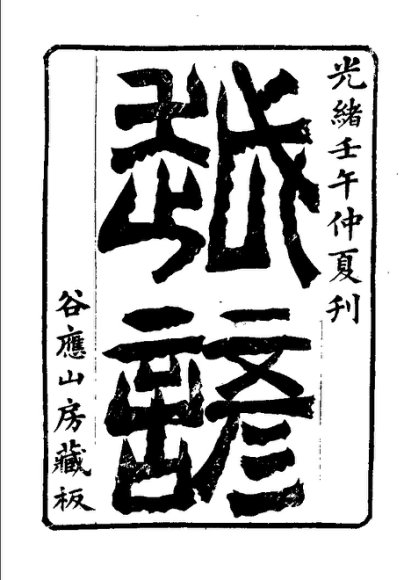 光緒壬午仲夏刊
越諺
谷應山房藏板